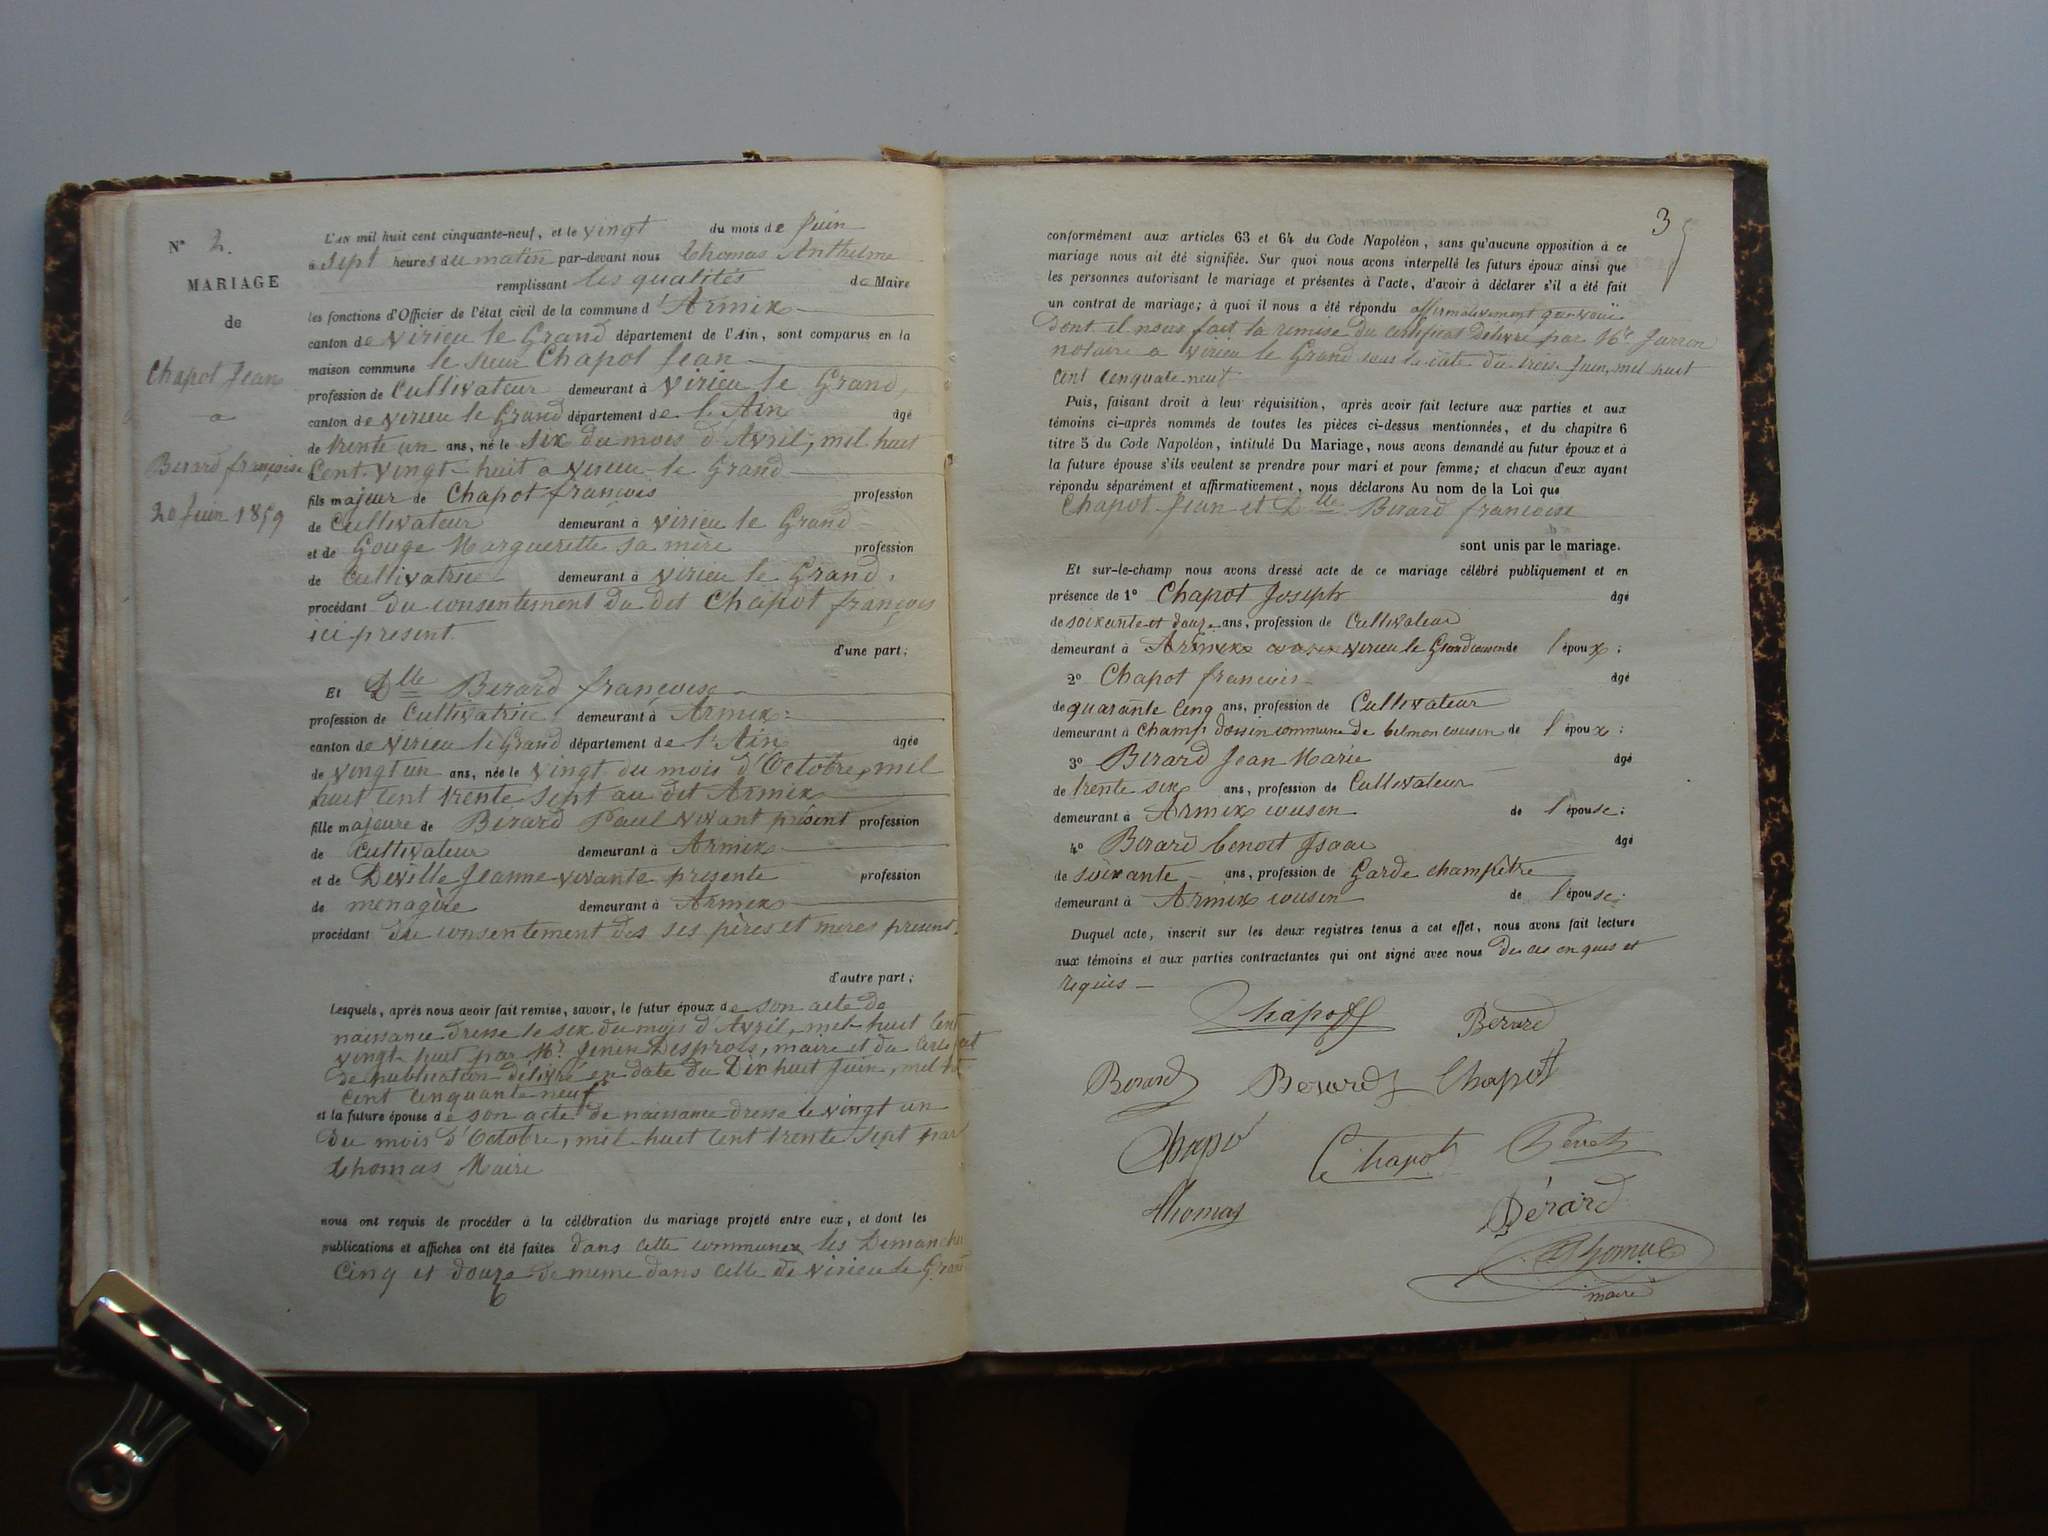 N° 2.
MARIAGE
de
Chapot Jean
a
Berard françoise
20 Juin 1859
L'AN mil huit cent cinquante-neuf, et le vingt du mois de Juin
à sept heures du matin par-devant nous Thomas Anthelme
remplissant les qualités de Maire
les fonctions d'Officier de l'état civil de la commune d'Armix
canton de virieu le Grand département de l'Ain, sont comparus en la
maison commune le sieur Chapot Jean
profession de Cultivateur demeurant à virieu le Grand,
canton de virieu le Grand département de l'Ain âgé
de trente un ans, né le six du mois d'Avril, mil huit
Cent vingt-huit a virieu le Grand
fils majeur de Chapot françois profession
de Cultivateur demeurant à virieu le Grand
et de Gouge Marguerette sa mère profession
de Cultivatrice demeurant à virieu le Grand,
procédant du consentement du dit Chapot françois
ici present.
d'une part;
Et Dlle Berard françoise
profession de Cultivatrice demeurant à Armix
canton de virieu le Grand département de l'Ain âgée
de vingt un ans, née le vingt du mois d'Octobre, mil
huit cent trente sept au dit Armix
fille majeure de Berard Paul vivant présent profession
de Cultivateur demeurant à Armix
et de Deville Jeanne vivante presente profession
de menagère demeurant à Armix
procédant du consentement des ses pères et meres present.
d'autre part;
Lesquels, après nous avoir fait remise, savoir, le futur époux de son acte de
naissance dresse le six du mois d'Avril, mil huit Cent
vingt-huit par Mr. Jenin Desprois, maire et du Certificat
de publication délivré en date du Dix huit Juin, mil huit
cent cinquante neuf
et la future épouse de son acte de naissance dresse le vingt un
du mois d'Octobre, mil huit cent trente sept par
Thomas Maire
nous ont requis de procéder à la célébration du mariage projeté entre eux, et dont les
publications et affiches ont été faites dans cette commune les Demanche
Cinq et douze de meme dans celle de virieu le Grand
35
conformément aux articles 63 et 64 du Code Napoléon, sans qu'aucune opposition à ce
mariage nous ait été signifiée. Sur quoi nous avons interpellé les futurs époux ainsi que
les personnes autorisant le mariage et présentes à l'acte, d'avoir à déclarer s'il a été fait
un contrat de mariage; à quoi il nous a été répondu affirmativement que voui
Dont il nous fait la remise du certificat Delivré par Me Jarron
notaire a virieu le Grand sous la date du trois Juin, mil huit
Cent Cenquate neuf
Puis, faisant droit à leur réquisition, après avoir fait lecture aux parties et aux
témoins ci-après nommés de toutes les pièces ci-dessus mentionnées, et du chapitre 6
titre 5 du Code Napoléon, intitulé Du Mariage, nous avons demandé au futur époux et à
la future épouse s'ils veulent se prendre pour mari et pour femme; et chacun d'eux ayant
répondu séparément et affirmativement, nous déclarons Au nom de la Loi que
Chapot Jean et Dlle Berard francoise
sont unis par le mariage.
Et sur-le-champ nous avons dressé acte de ce mariage célébré publiquement et en
présence de 1° Chapot Joseph âgé
de soixante et douze ans, profession de Cultivateur
demeurant à virieu le Grand cousin de l'époux;
2° Chapot francois âgé
de quarante Cinq ans, profession de Cultivateur
demeurant à Champ dossin commune de belmon cousin de l'époux;
3° Berard Jean Marie âgé
de trente six ans, profession de Cultivateur
demeurant à Armix cousin de l'épouse;
4° Berard benoit Isaac âgé
de soixante ans, profession de Garde champêtre
demeurant à Armix cousin de l'épouse;
Duquel acte, inscrit sur les deux registres tenus à cet effet, nous avons fait lecture
aux témoins et aux parties contractantes qui ont signé avec nous De ces enques et
requis
Chapot Berard
Berard Berard Chapot
Chapo Chapot Perret
Thomas Bérard
Thomas
maire